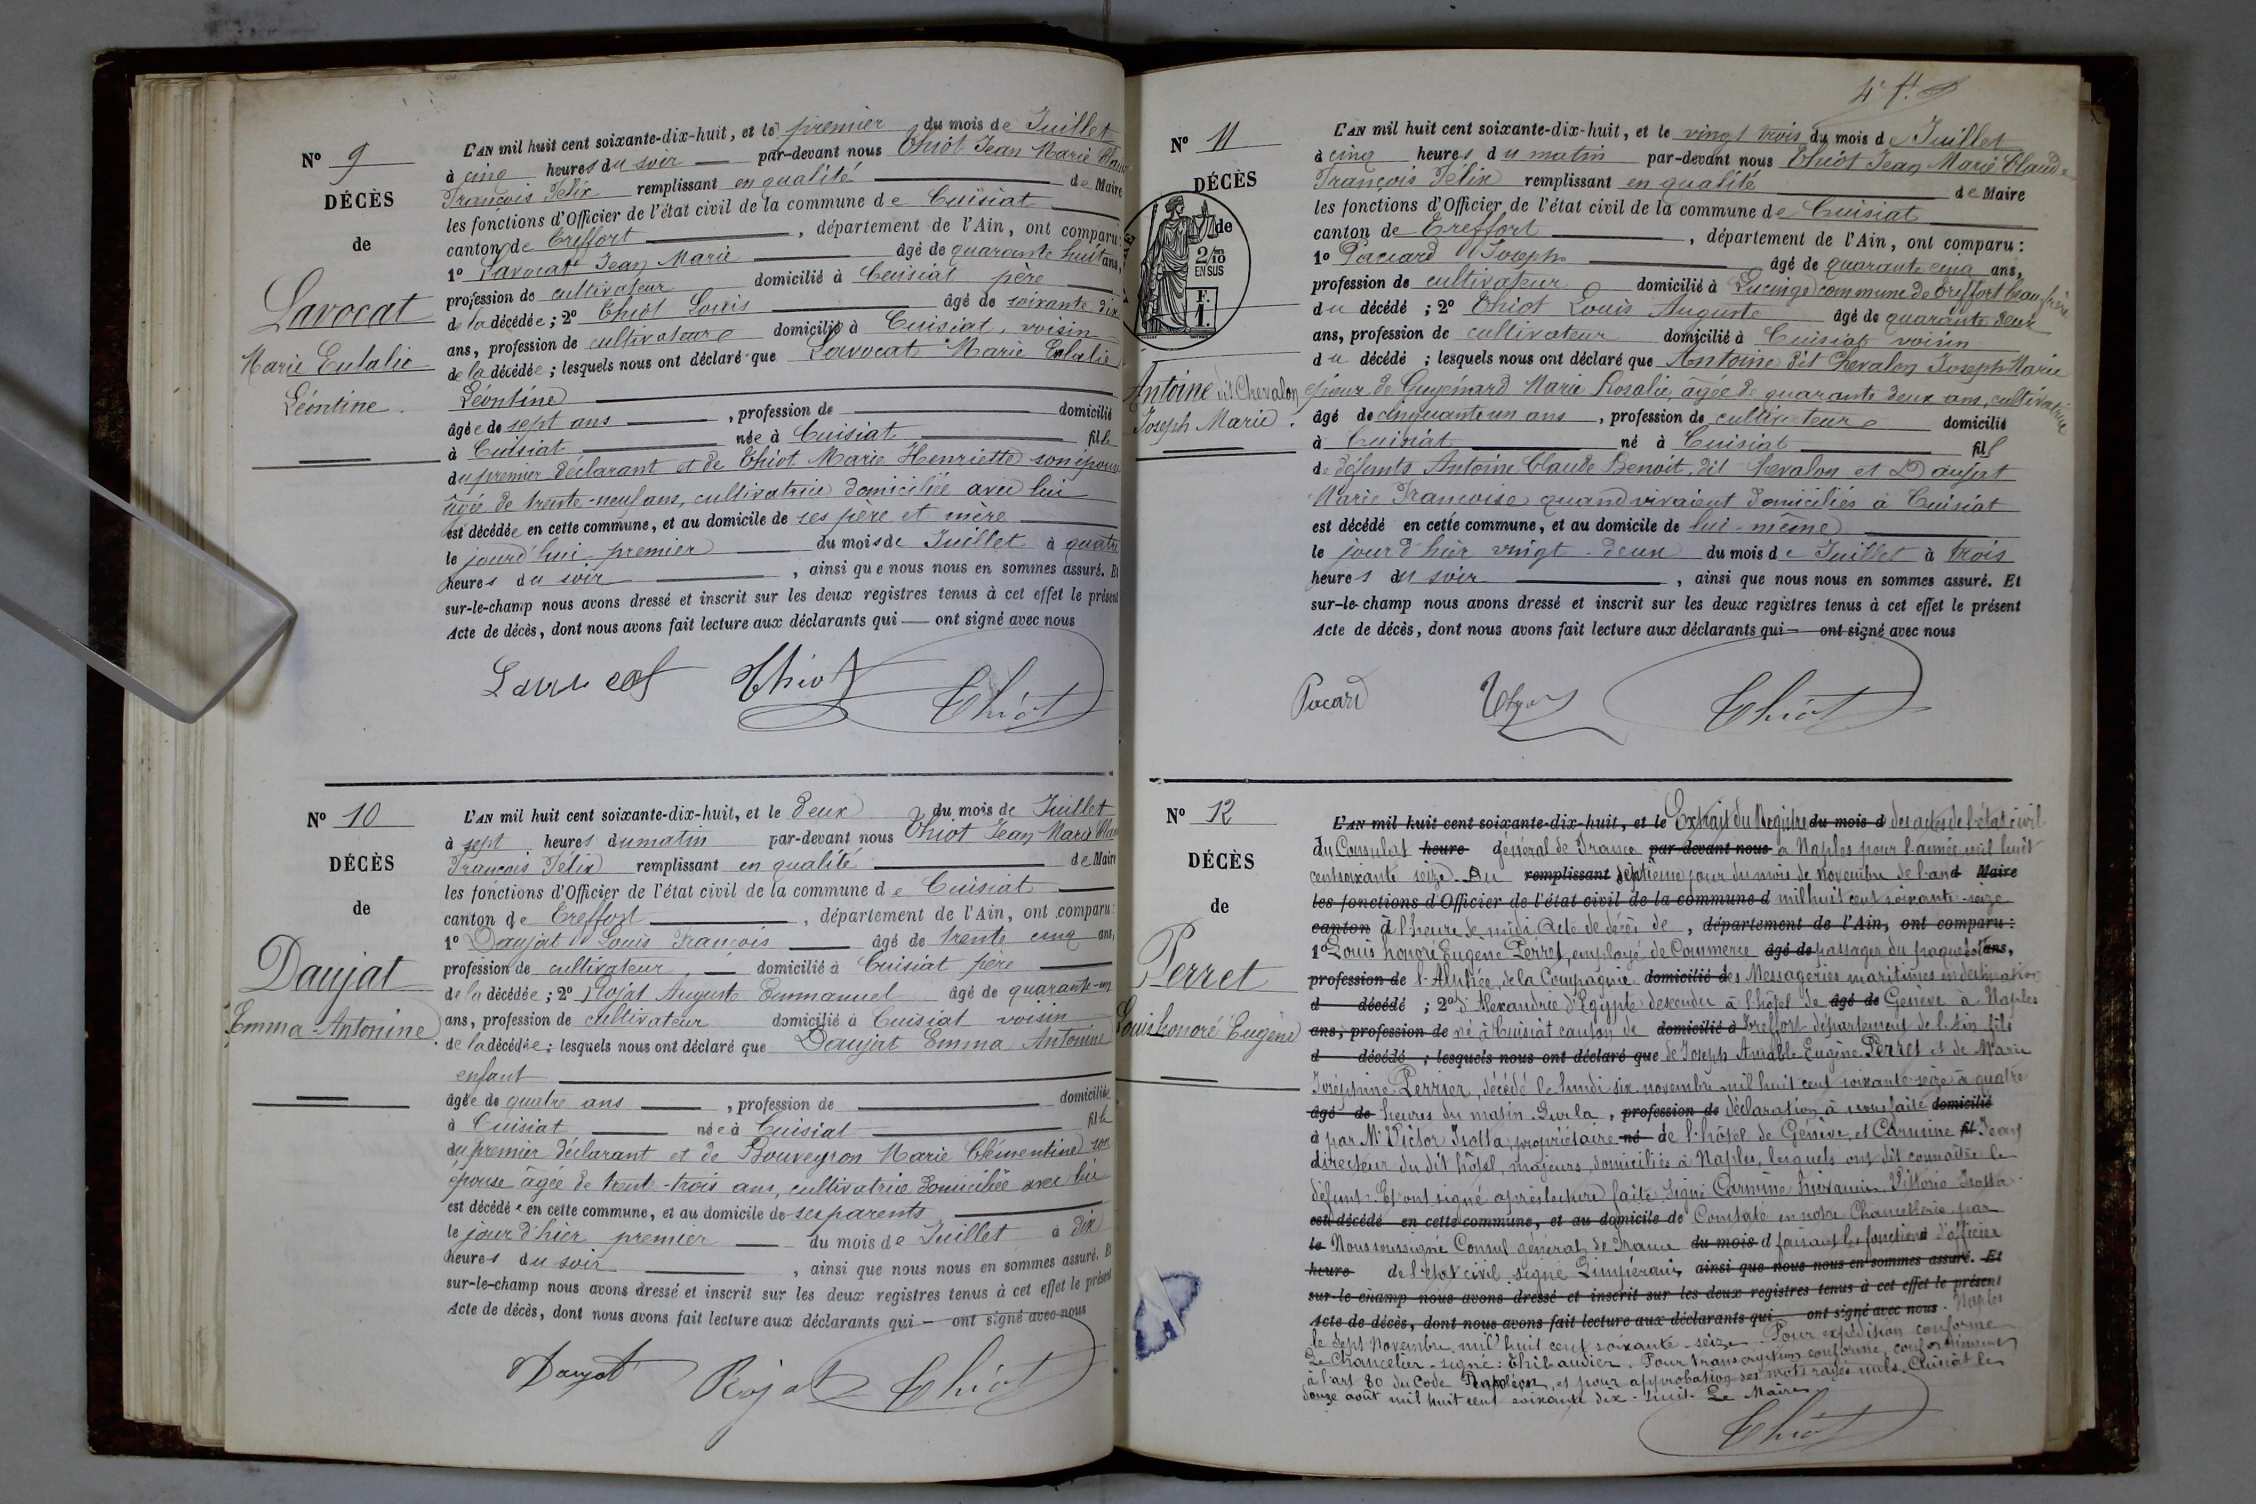 Nº 9
DÉCÈS
de
Lavocat
Marie Eulalie
Léontine.
L'AN mil huit cent soixante-dix-huit, et le premier du mois de Juillet
à cinq heures du soir par-devant nous Chiot Jean Marie
François Félix remplissant en qualité de Maire
les fonctions d'Officier de l'état civil de la commune de Cuisiat
canton de Treffort, département de l'Ain, ont comparu:
1º Lavocat Jean Marie âgé de quarante huit ans,
profession de cultivateur domicilié à Cuisiat père
de la décédée; 2º Chiot Louis âgé de soixante dix
ans, profession de cultivateur domicilié à Cuisiat, voisin
de la décédée; lesquels nous ont déclaré que Lavocat Marie Eulalie
Léontine
âgée de sept ans, profession de domicilié
à Cuisiat née à Cuisiat fille
du premier déclarant et de Chiot Marie Henriette son épouse
âgée de trente-neuf ans, cultivatrice domiciliée avec lui
est décédée en cette commune, et au domicile de ses père et mère
le jourd'hui premier du mois de Juillet à quatre
heures du soir, ainsi que nous nous en sommes assuré. Et
sur-le-champ nous avons dressé et inscrit sur les deux registres tenus à cet effet le présent
Acte de décès, dont nous avons fait lecture aux déclarants qui ont signé avec nous
Lavocat Chiot Chiot
Nº 10
DÉCÈS
de
Daujat
Emma-Antonine.
L'AN mil huit cent soixante-dix-huit, et le deux du mois de Juillet
à sept heures du matin par-devant nous Chiot Jean Marie
François Félix remplissant en qualité de Maire
les fonctions d'Officier de l'état civil de la commune de Cuisiat
canton de Treffort, département de l'Ain, ont comparu:
1º Daujat Louis François âgé de trente cinq ans,
profession de cultivateur, domicilié à Cuisiat père
de la décédée; 2º Rojat Auguste Emmanuel âgé de quarante-un
ans, profession de cultivateur domicilié à Cuisiat voisin
de la décédée; lesquels nous ont déclaré que Daujat Emma Antonine
enfant
âgée de quatre ans, profession de domiciliée
à Cuisiat née à Cuisiat fille
du premier déclarant et de Bouveyron Marie Clémentine son
épouse âgée de trent-trois ans, cultivatrice domiciliée avec lui
est décédée en cette commune, et au domicile de ses parents
le jour d'hier premier du mois de Juillet à dix
heures du soir, ainsi que nous nous en sommes assuré. Et
sur-le-champ nous avons dressé et inscrit sur les deux registres tenus à cet effet le présent
Acte de décès, dont nous avons fait lecture aux déclarants qui ont signé avec nous
Daujat Rojat Chiot
Nº 11
DÉCÈS
de
2/10
EN SUS
F.
1.
Antoine dit Chevalon
Joseph Marie.
L'AN mil huit cent soixante-dix-huit, et le vingt trois du mois de Juillet
à cinq heures du matin par-devant nous Chiot Jean Marie Claude
François Félix remplissant en qualité de Maire
les fonctions d'Officier de l'état civil de la commune de Cuisiat
canton de Treffort, département de l'Ain, ont comparu:
1º Pacard Joseph âgé de quarante cinq ans,
profession de cultivateur domicilié à Lucinge commune de Treffort beau frère
du décédé; 2º Chiot Louis Auguste âgé de quarante deux
ans, profession de cultivateur domicilié à Cuisiat voisin
du décédé; lesquels nous ont déclaré que Antoine dit Chevalon Joseph Marie
époux de Guyénard Marie Rosalie, âgée de quarante deux ans, cultivatrice
âgé de cinquante un ans, profession de cultivateur domicilié
à Cuisiat né à Cuisiat fils
de défunts Antoine Claude Benoit, dit Chevalon et Daujat
Marie Françoise quand vivaient domiciliés à Cuisiat
est décédé en cette commune, et au domicile de lui-même
le jour d'hier vingt-deux du mois de Juillet à trois
heures du soir, ainsi que nous nous en sommes assuré. Et
sur-le-champ nous avons dressé et inscrit sur les deux registres tenus à cet effet le présent
Acte de décès, dont nous avons fait lecture aux déclarants qui ont signé avec nous
Pacard Chiot
Nº 12
DÉCÈS
de
Perret
Louis honoré Eugène
L'AN mil huit cent soixante-dix-huit, et le Extrait du Registre du mois d des actes de l'état civil
du Consulat heure général de France par-devant nous à Naples pour l'année mil huit
cent soixante seize. Du remplissant septième jour du mois de novembre de l'an d Maire
les fonctions d'Officier de l'état civil de la commune d mil huit cent soixante-seize
canton à l'heure de midi Acte de décès de, département de l'Ain, ont comparu:
1º Louis honoré Eugène Perret, employé de Commerce âgé de passager du paquebot ans,
profession de de la Compagnie domicilié des Messageries maritimes en destination
d décédé; 2º d'Alexandrie d'Egypte descendu à l'hôtel de âgé de Genève à Naples
ans, profession de né à Cuisiat canton de domicilié à Treffort département de l'Ain fils
d décédé; lesquels nous ont déclaré que de Joseph Amable Eugène Perret et de Marie
Joséphine Perrier, décédé le lundi six novembre mil huit cent soixante-seize à quatre
âgé de heures du matin. Sur la, profession de déclaration à nous faite domicilié
à par Mr Victor Isotta, propriétaire né de l'hôtel de Genève, et Carmine fil
directeur du dit hôtel, majeurs, domiciliés à Naples, lesquels ont dit connaître le
défunt. Et ont signé après lecture faite. Signé Carmine Vittorio Isotta.
est décédé en cette commune, et au domicile de Constaté en notre Chancellerie par
le Nous soussigné Consul général de France du mois d faisant les fonctions d'officier
heure de l'état civil signé, ainsi que nous nous en sommes assuré. Et
sur-le-champ nous avons dressé et inscrit sur les deux registres tenus à cet effet le présent
Acte de décès, dont nous avons fait lecture aux déclarants qui ont signé avec nous. Naples
le sept Novembre mil huit cent soixante-seize. Pour expédition conforme
Le Chancelier - signé: Thibaudier. Pour transcription conforme, conformément
à l'art 80 du Code Napoléon, et pour approbation des mots rayés nuls. Cuisiat le
douze août mil huit cent soixante dix-huit. Le Maire
Chiot